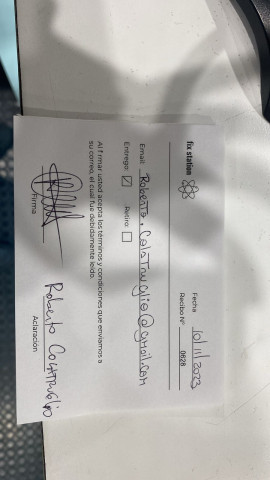 fix station
Fecha 10/11/2023
Recibo Nº 0828
Email: Roberto.Colatruglio@gmail.com
Entrega ☑ Retira ☐
Al firmar usted acepta los términos y condiciones que enviamos a
su correo, el cual fue debidamente leído.
Roberto Colatruglio
Firma Aclaración